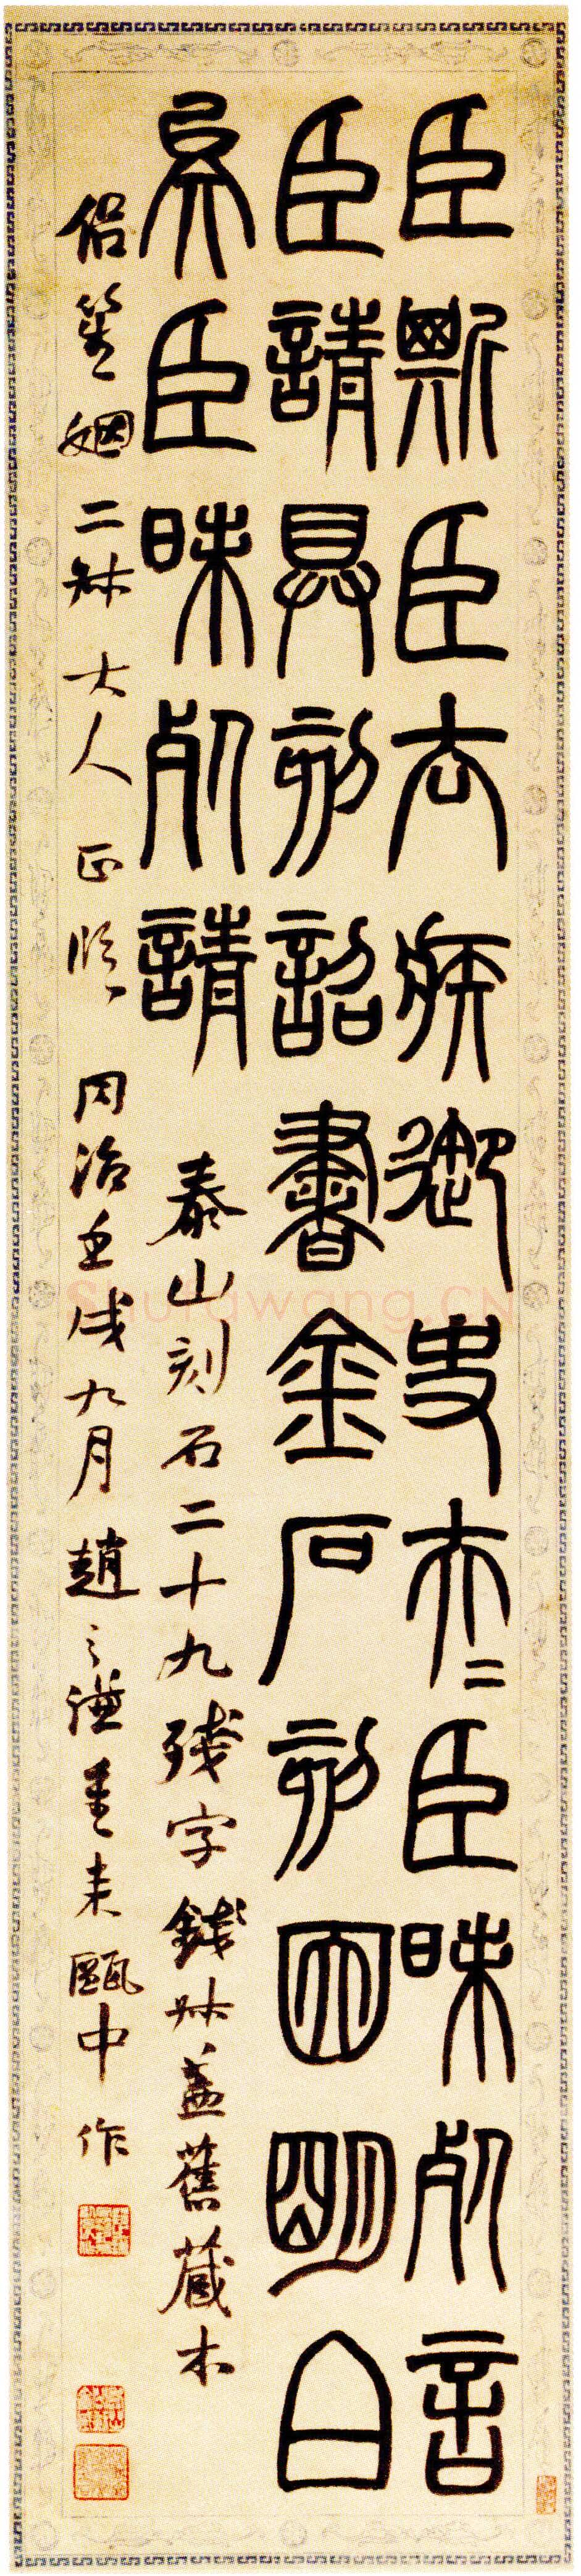 臣斯臣去疾御史夫二臣昧死言
臣請具刻詔書金石刻因明白
矣臣昧死請
泰山刻石二十九殘字錢叔蓋舊藏本
侶笙姻二叔大人正臨 同治壬戌九月趙之謙重來甌中作
Shufawang.CN